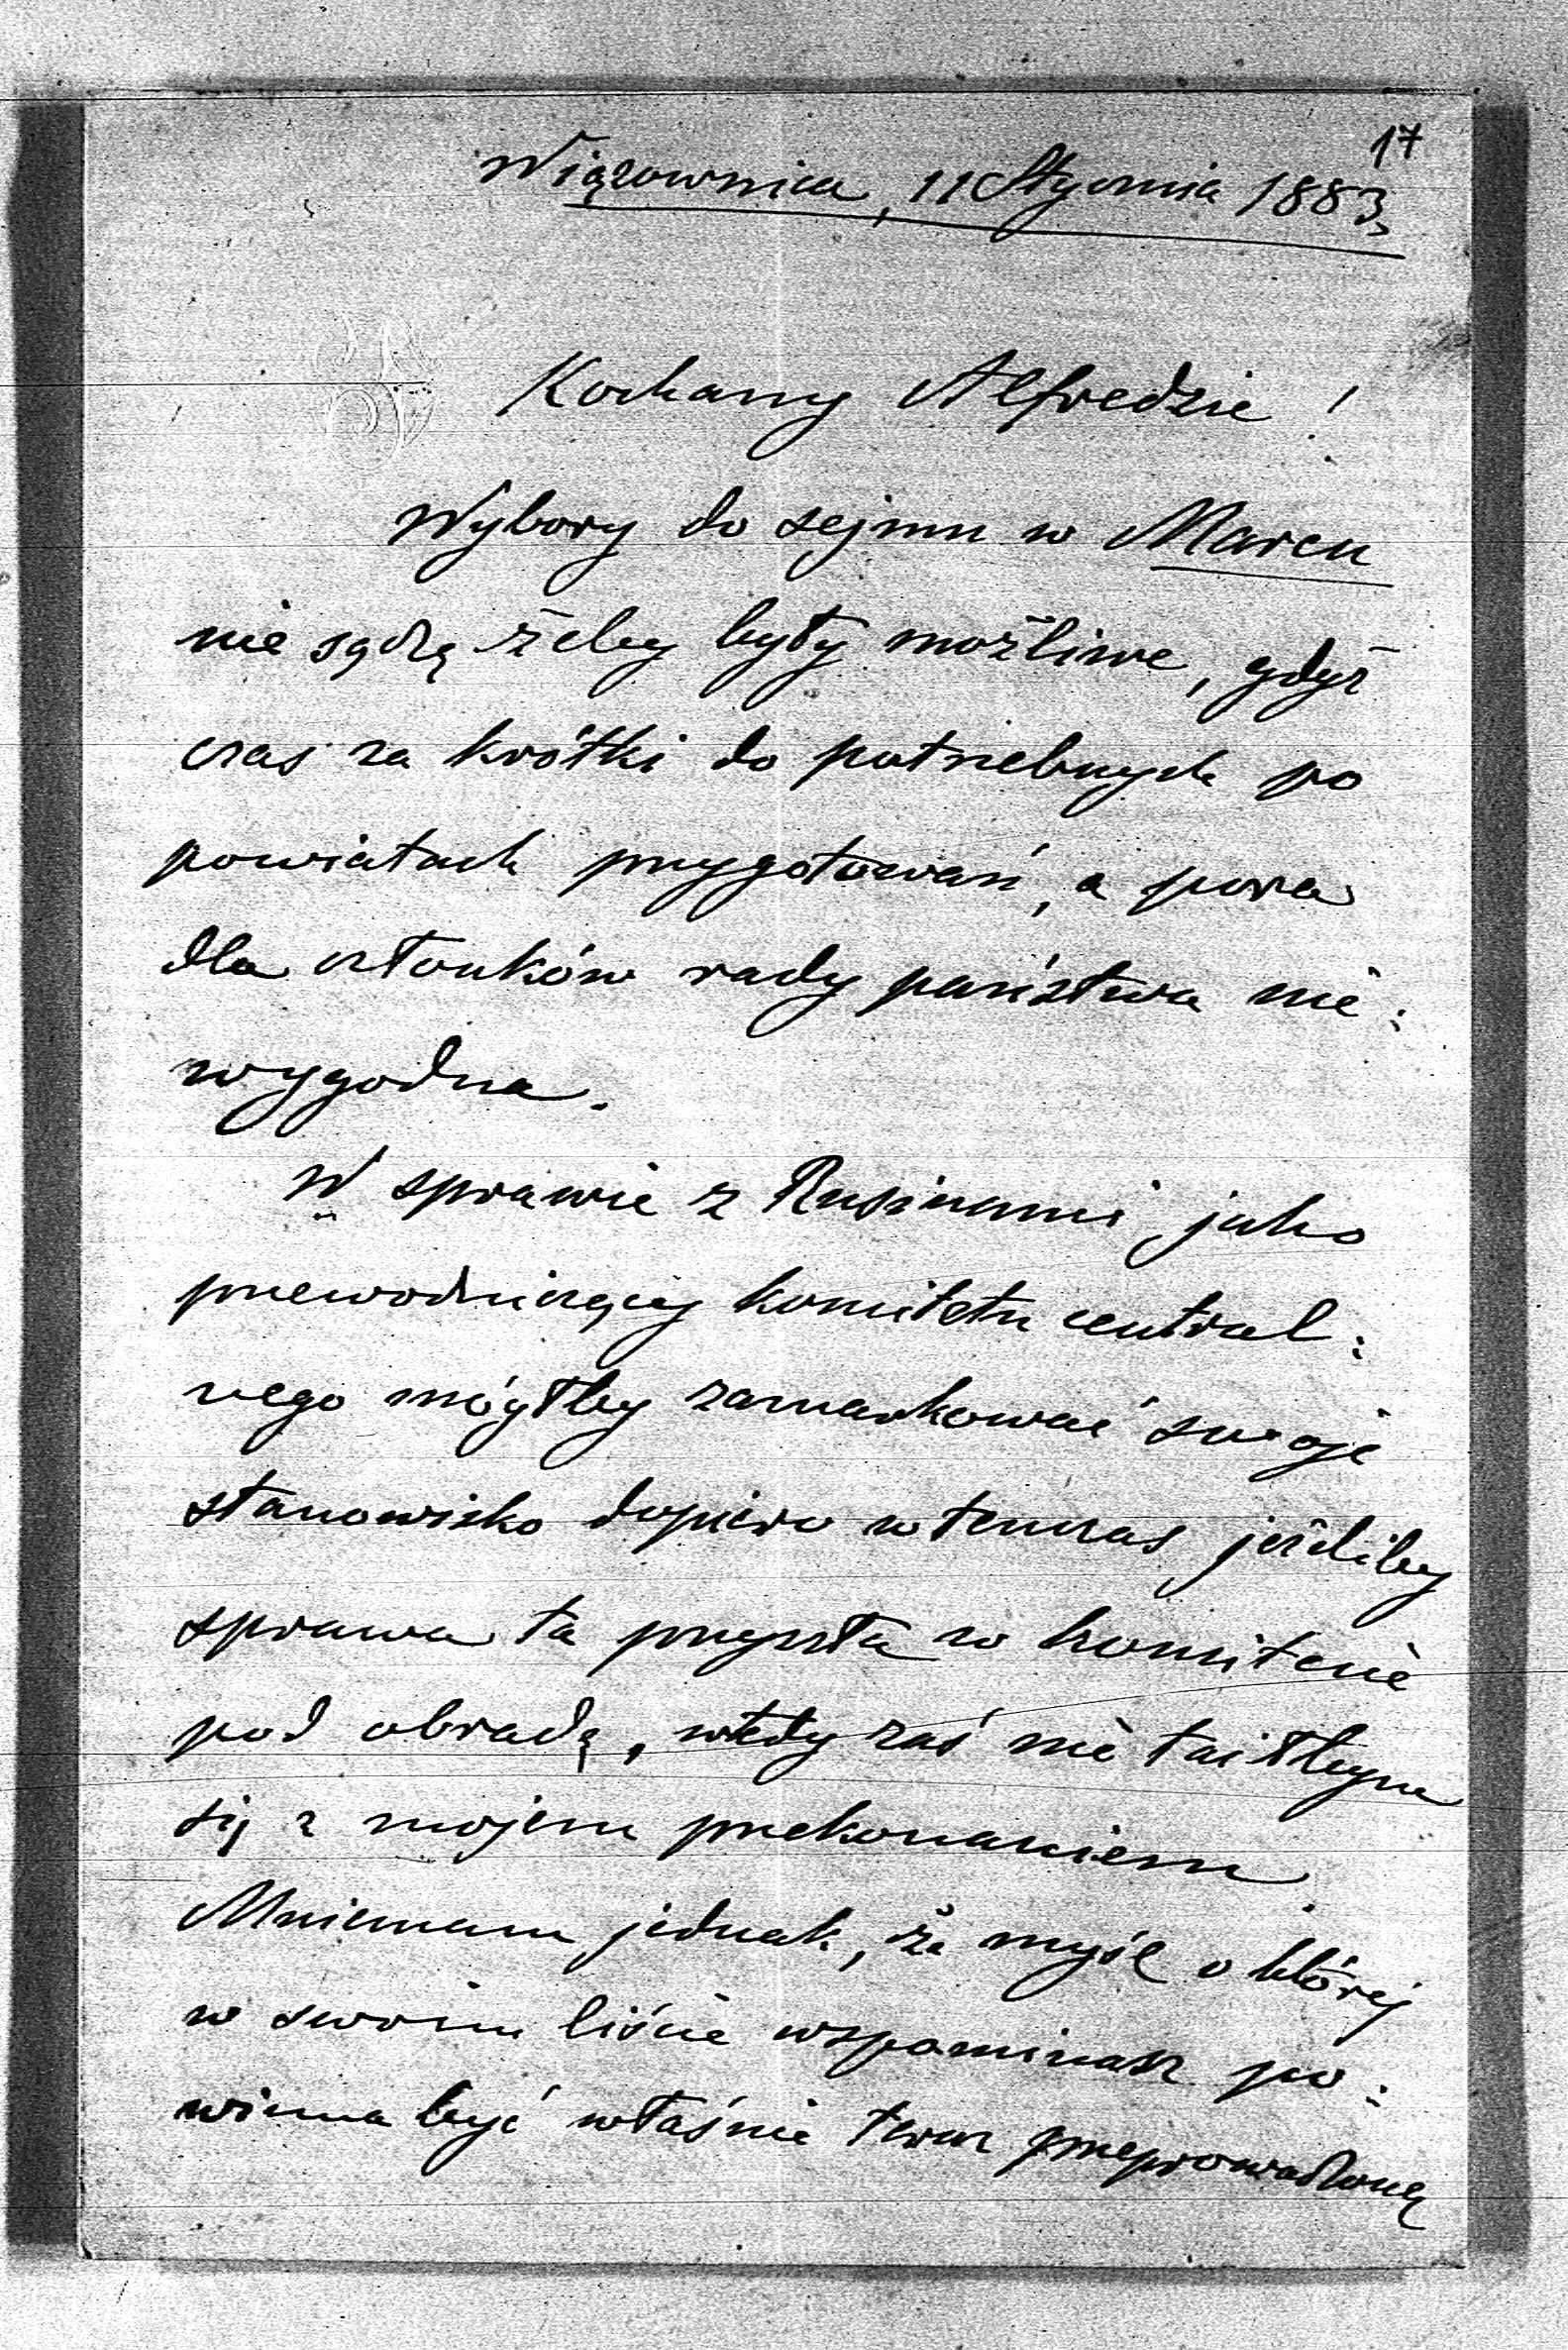 17
Wiązownica, 11 Stycznia 1883
Kochany Alfredzie !
Wybory do sejmu w Marcu
nie sądzę żeby były możliwe, gdyż
czas za krótki do potrzebnych po
powiatach przygotowań, a pora
dla członków rady państwa nie:
wygodna.
W sprawie z Rusinami jako
przewodniczący komitetu central:
nego mógłby zamarkować swoje
stanowisko dopiero wtenczas jeżeliby
sprawa ta przyszła w komitecie
pod obradę, wtedy zaś nie taiłbym
się z mojem przekonaniem.
Mniemam jednak, że myśl o której
w swoim liście wspominasz po:
winna być właśnie teraz przeprowadzoną